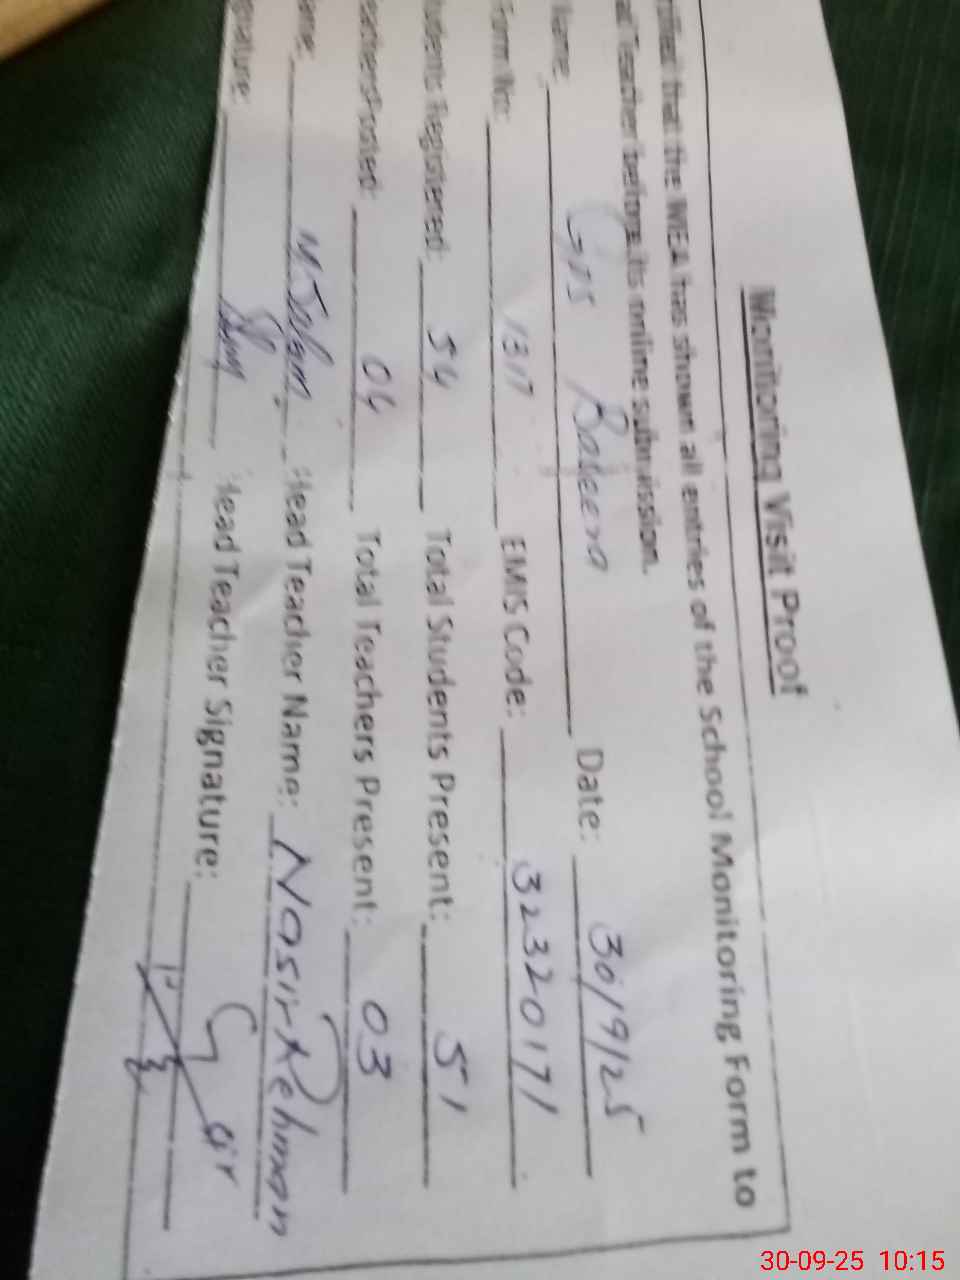 Monitoring Visit Proof
that the MEA has shown all entries of the School Monitoring Form to
Teacher before its online submission.
Name: GPS Date: 30/9/25
Form No: 1317 EMIS Code: 32320171
Students Registered: 54 Total Students Present: 51
Teachers Posted: 04 Total Teachers Present: 03
Name: Head Teacher Name: Nasir Rehman
Signature: Head Teacher Signature:
30-09-25 10:15